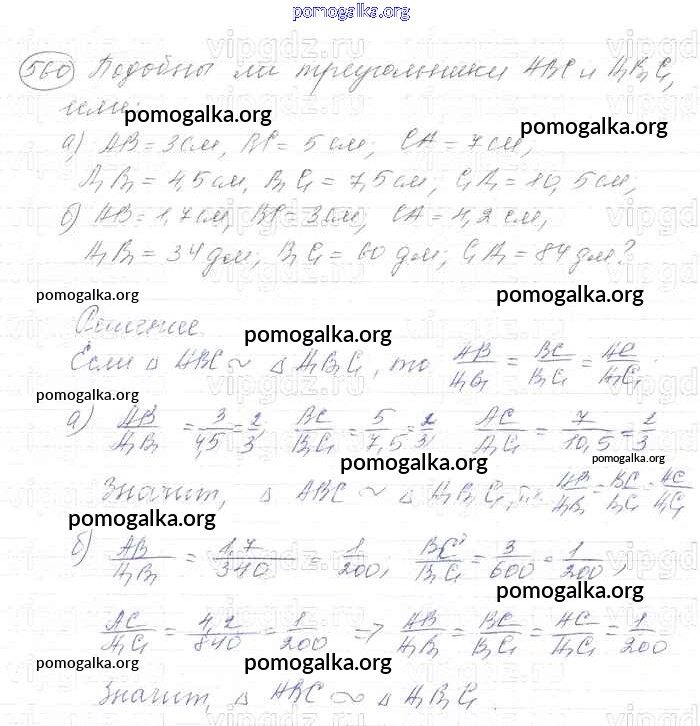 pomogalka.org
560 Подобны ли треугольники ABC и A₁B₁C₁,
если:
pomogalka.org
pomogalka.org
а) AB = 3 см, BC = 5 см; CA = 7 см,
A₁B₁ = 4,5 см, B₁C₁ = 7,5 см; C₁A₁ = 10,5 см;
б) AB = 1,7 см, BC = 3 см, CA = 4,2 см,
A₁B₁ = 34 дм, B₁C₁ = 60 дм; C₁A₁ = 84 дм?
pomogalka.org
pomogalka.org
Решение.
pomogalka.org
Если △ ABC ~ △ A₁B₁C₁, то AB/A₁B₁ = BC/B₁C₁ = AC/A₁C₁.
pomogalka.org
а) AB/A₁B₁ = 3/4,5 = 2/3; BC/B₁C₁ = 5/7,5 = 2/3; AC/A₁C₁ = 7/10,5 = 2/3
pomogalka.org
pomogalka.org
Значит, △ ABC ~ △ A₁B₁C₁, т.к. AB/A₁B₁ = BC/B₁C₁ = AC/A₁C₁
pomogalka.org
б) AB/A₁B₁ = 1,7/340 = 1/200; BC/B₁C₁ = 3/600 = 1/200,
pomogalka.org
AC/A₁C₁ = 4,2/840 = 1/200 => AB/A₁B₁ = BC/B₁C₁ = AC/A₁C₁ = 1/200
pomogalka.org
pomogalka.org
Значит, △ ABC ~ △ A₁B₁C₁